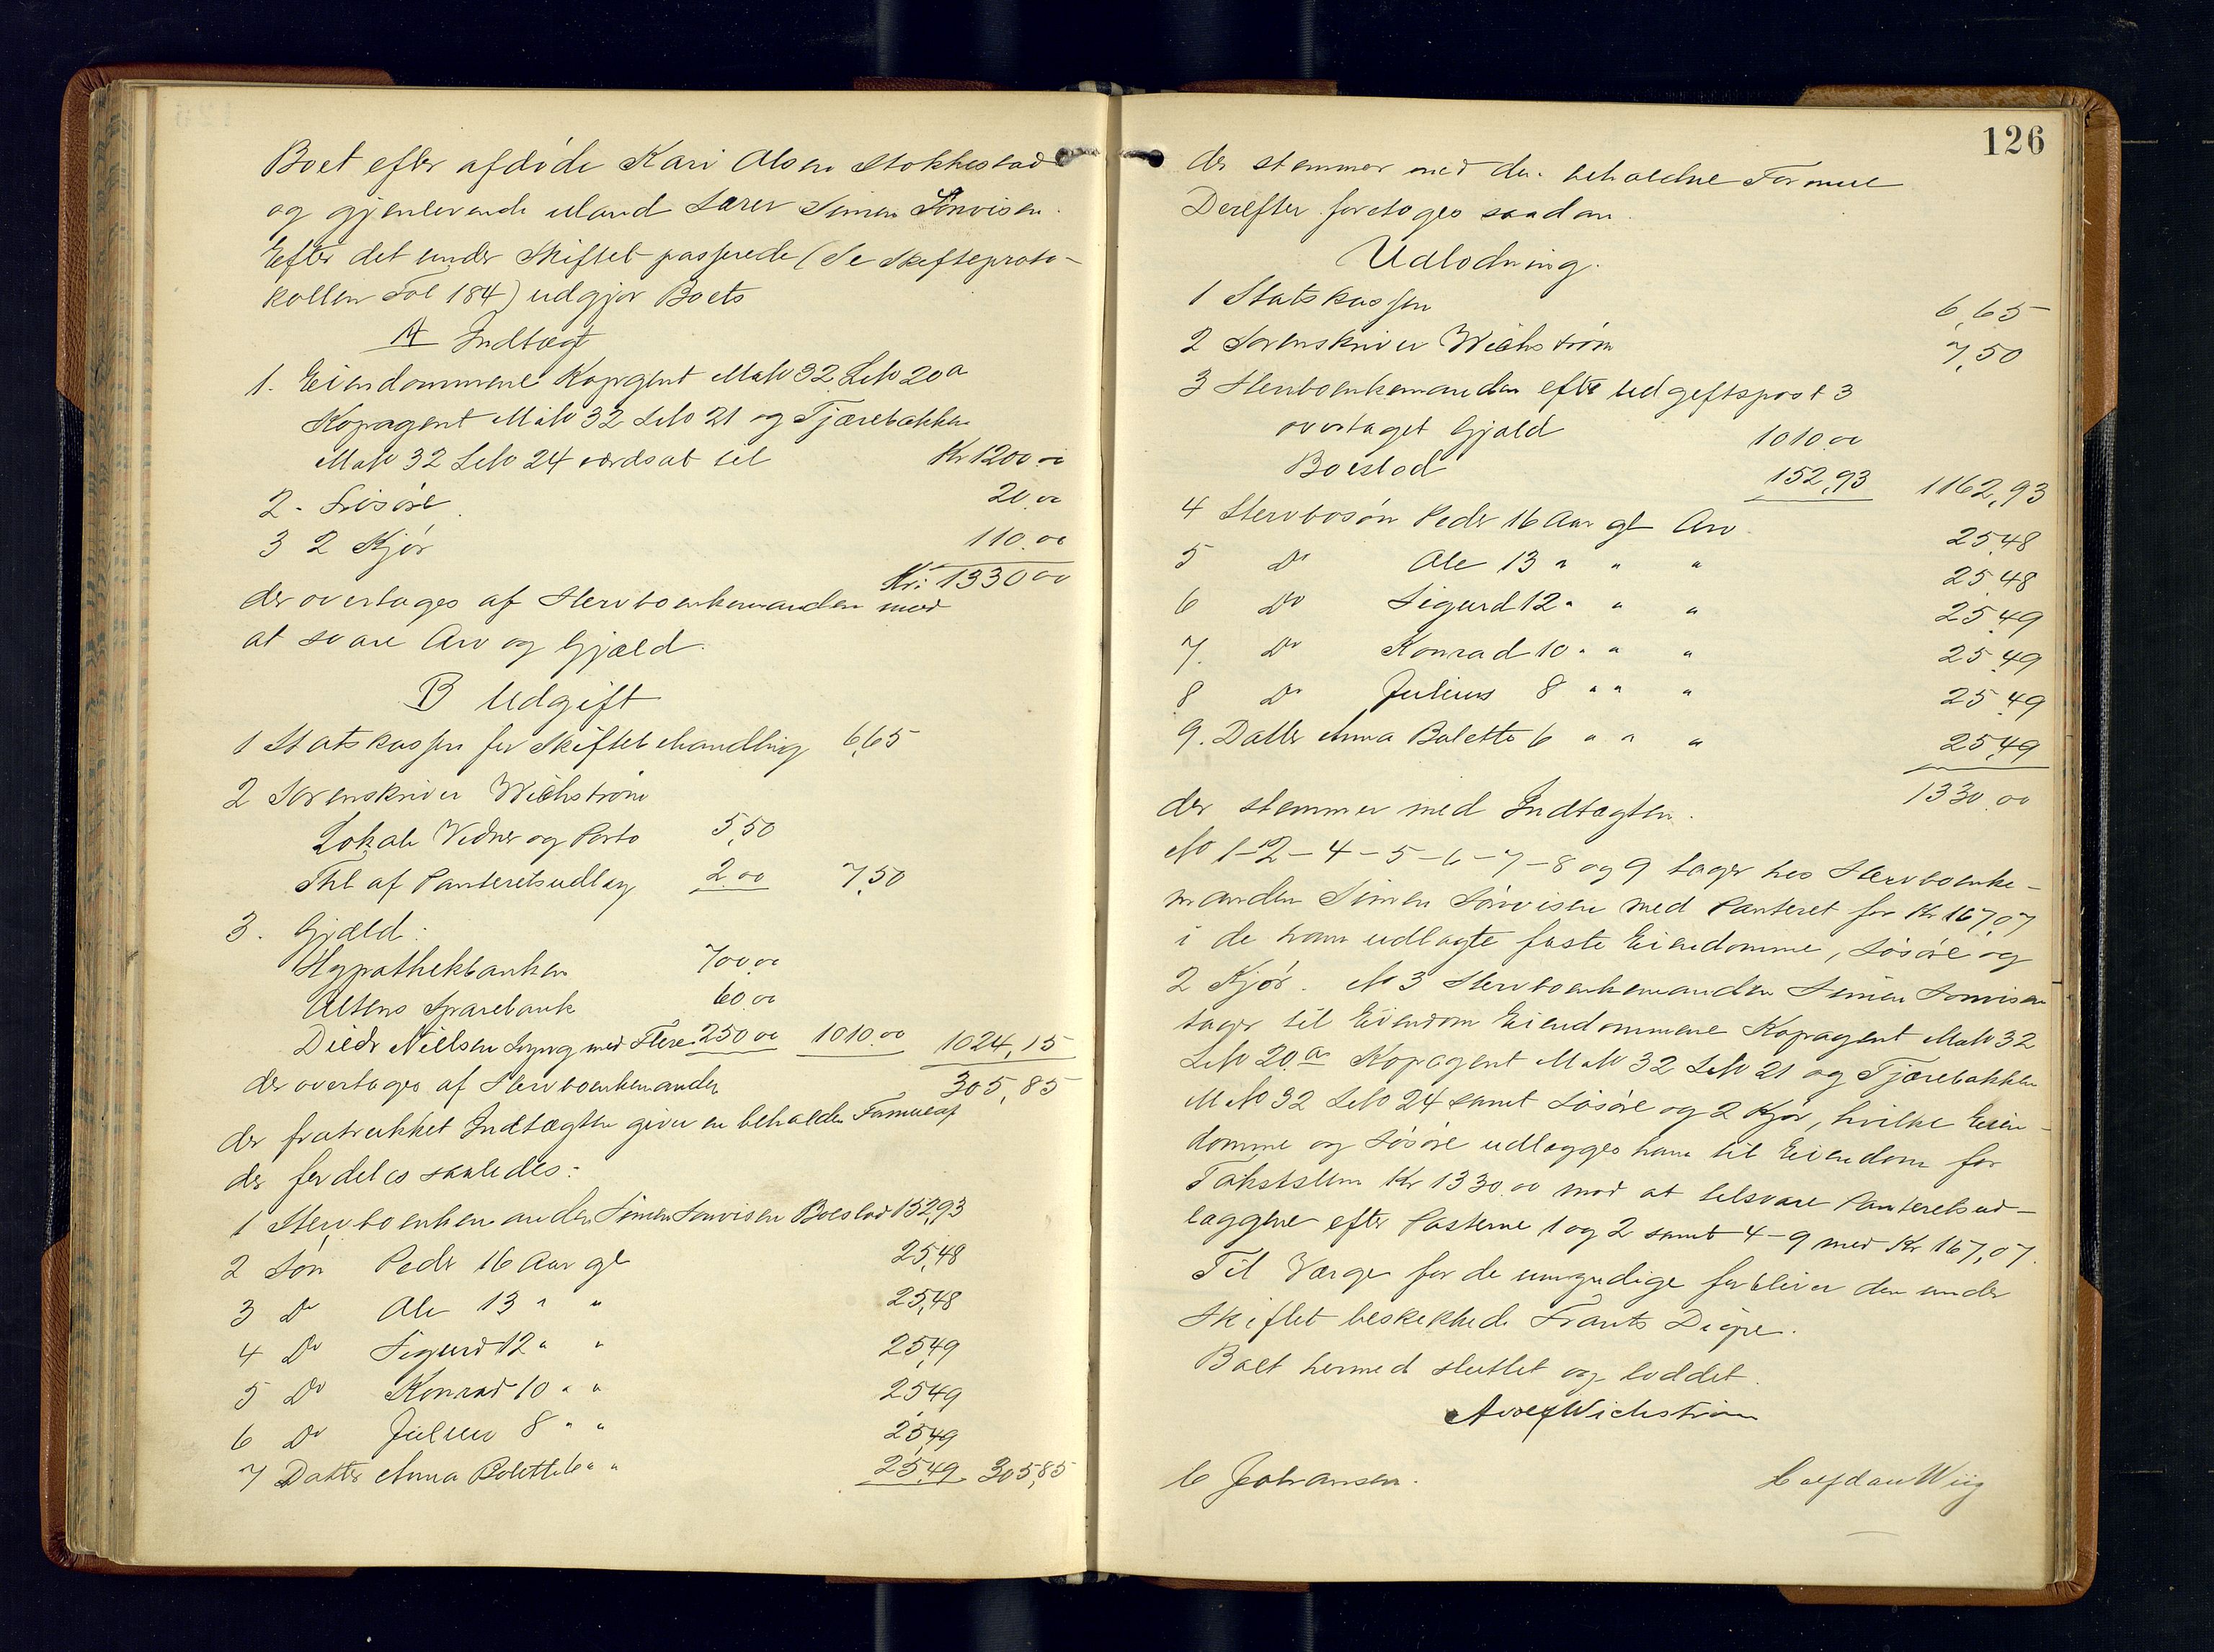 Boet efter afdöde Kari Olsen Stokkestad
og gjenlevende Mand Lærer Simen Sönvisen.
Efter det under Skiftet passerede (Se Skifteproto-
kollen Fol 184) udgjør Boets
A Indtægt
1. Eiendommene Kopagent MaNo 32 LNo 20 a
Kopagent MaNo 32 LNo 21 og Tjærebakken
MaNo 32 LNo 24 værdsat til Kr 1200.00
2. Lösöre 20.00
3 2 Kjör 110.00
Kr: 1330 00
der overtages af Stervboenkemanden mod
at svare Arv og Gjæld.
B Udgift
1 Statskassen for Skiftebehandling 6,65
2 Sorenskriver Wichström
Lokale Vidner og Porto 5,50
Thl af Panteretsudlæg 2.00 7,50
3. Gjæld:
Hypothekbanken 700.00
Altens Sparebank 60.00
Diedr Nielsen Lyng med Flere 250 00 1010.00 1024,15
der overtages af Stervboenkemanden 305,85
der fratrukket Indtægten giver en beholden Formue af
der fordeles saaledes:
1 Stervboenkemanden Simen Sönvisen Boeslod 152,93
2 Sön Peder 16 Aar gl 25,48
3 Do Ole 13 " " 25,48
4 Do Sigurd 12 " " 25,49
5 Do Konrad 10 " " 25,49
6 Do Julius 8 " " 25,49
7 Datter Anna Bolette 6 " " 25,49 305,85
126
der stemmer med den beholdne Formue
Derefter foretoges saadan
Udlodning.
1 Statskassen 6,65
2 Sorenskriver Wichström 7,50
3 Stervboenkemanden efter Udgiftspost 3
overtaget Gjæld 1010.00
Boeslod 152,93 1162,93
4 Stervbosön Peder 16 Aar gl Arv 25,48
5 Do Ole 13 " " " 25,48
6 Do Sigurd 12 " " " 25,49
7. Do Konrad 10 " " " 25,49
8 Do Julius 8 " " " 25,49
9. Datter Anna Bolette 6 " " " 25,49
1330.00
der stemmer med Indtægten.
No 1-2-4-5-6-7-8 og 9 tager hos Stervboenke-
manden Simen Sönvisen med Panteret for Kr 167,07
i de ham udlagte faste Eiendomme, Lösöre og
2 Kjör. No 3 Stervboenkemanden Simen Sönvisen
tager til Eiendom Eiendommene Kopagent MaNo 32
LNo 20.a Kopagent MaNo 32 LNo 21 og Tjærebakken
MNo 32 LNo 24 samt Lösöre og 2 Kjör, hvilke Eien-
domme og Lösöre udlægges ham til Eiendom for
Takstsum Kr 1330.00 mod at tilsvare Panteretsud-
læggene efter Posterne 1 og 2 samt 4-9 med Kr 167,07.
Til Værge for de umyndige forbliver den under
Skiftet beskikkede Frants Digre.
Boet hermed sluttet og loddet.
Adolf Wichström
C Johansen. Halfdan Wiig